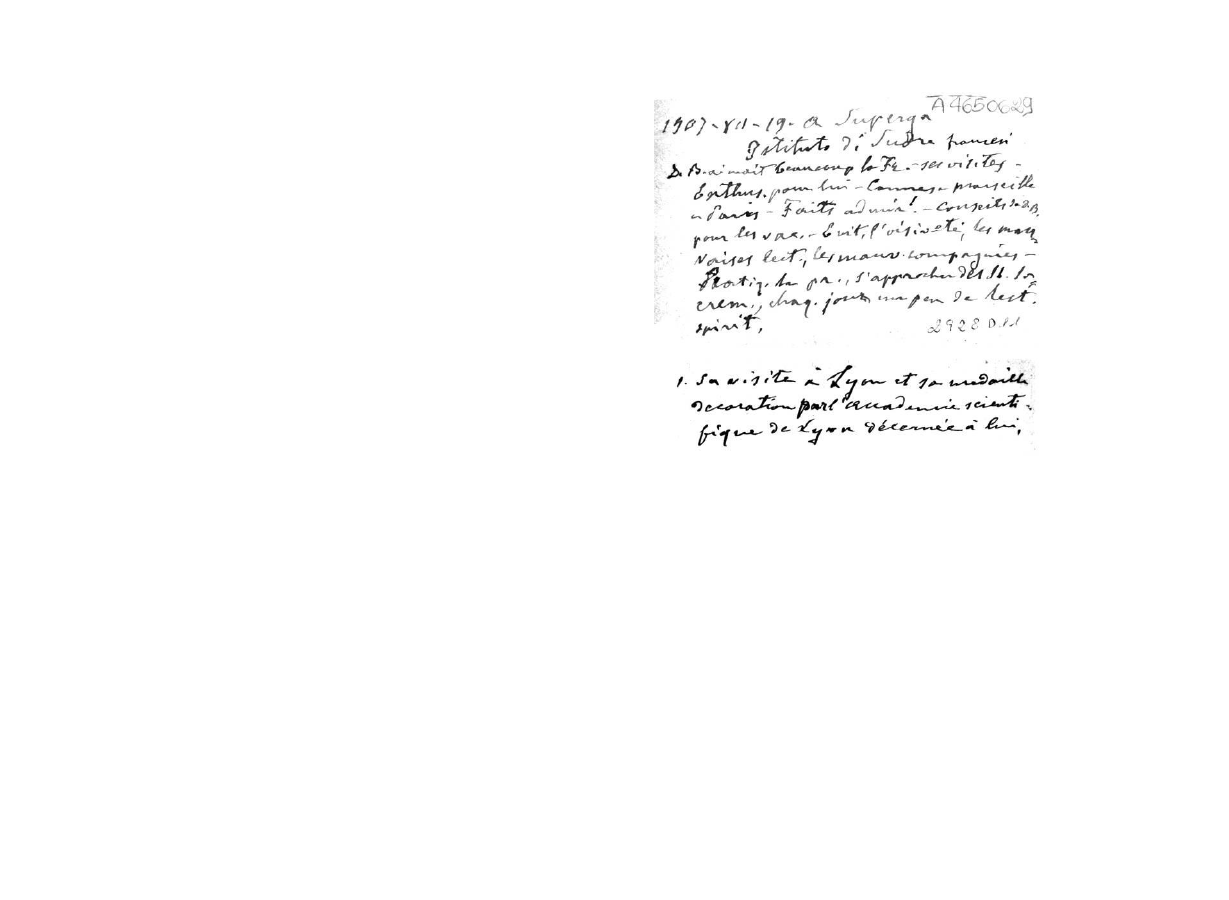 A4650629
1907-VII-19- a Superga
Istituto di Sudra francesi
D. B. aimait beaucoup la Fr. - ses visites -
Enthus. pour lui - Cannes - Marseille
Paris - Faits admir! - Conseils de D.B.
pour les vac. - Evit. l'oisiveté, les mau-
vaises lect., les mauv. compagnies -
Pratiq. la pr., s'approcher des SS. Sa-
crem., chaq. jour un peu de lect.
spirit,
2928
1. Sa visite à Lyon et sa medaille
decoration par l'Academie scienti-
fique de Lyon décernée à lui,